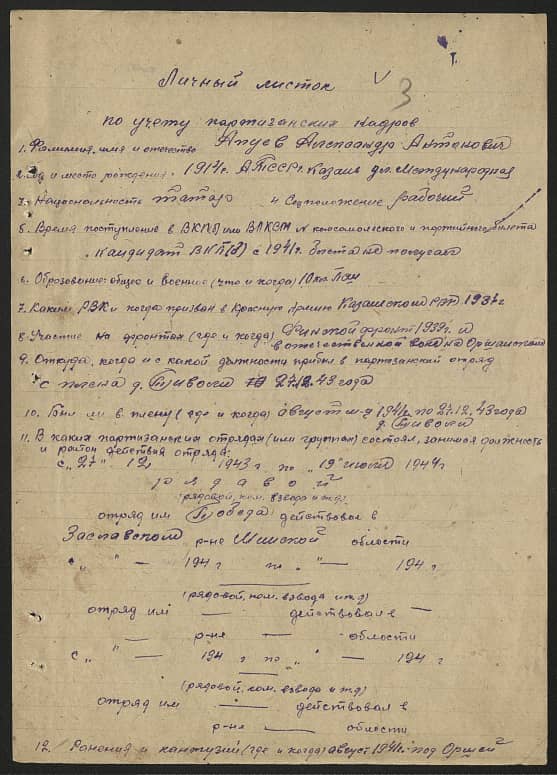 Личный листок
3
по учету партизанских кадров
1. Фамилия, имя и отчество Александр Антонович
2. Год и место рождения. 1914 г. АТССР г. Казань ул. Международная
3. Национальность татар 4 Соцположение рабочий
5. Время поступления в ВКП(б) или ВЛКСМ N комсомольского и партийного билета
Кандидат ВКП(б) с 1941 г. не получал
6. Образование: общее и военное (что и когда) 10 кл
7. Каким РВК и когда призван в Красную Армию Казанском РВК 1937 г
8. Участие на фронтах (где и когда) Финской фронт 1939 г. и
в отечественной войне на Оршанском
9. Откуда, когда и с какой должности прибыл в партизанский отряд
с плена д. 27.12.43 года
10. Был ли в плену (где и когда) август м-ц 1941 г. по 27.12.43 года
д.
11. В каких партизанских отрядах (или группах) состоял, занимая должность
и район действия отряда:
с "27" 12 1943 г. по "19" июля 1944 г
рядавой
(рядовой, ком. взвода и т.д.)
отряд им Победа действовал в
Заславском р-не Минской области
с " " — 194 г по " — 194 г.
(рядовой, ком. взвода и т.д)
отряд им — действовал в —
р-не — области
с " " — 194 г по " " — 194 г
(рядовой, ком. взвода и т.д)
отряд им — действовал в
р-не — области
12. Ранения и контузии (где и когда) август 1941 г. под Оршей